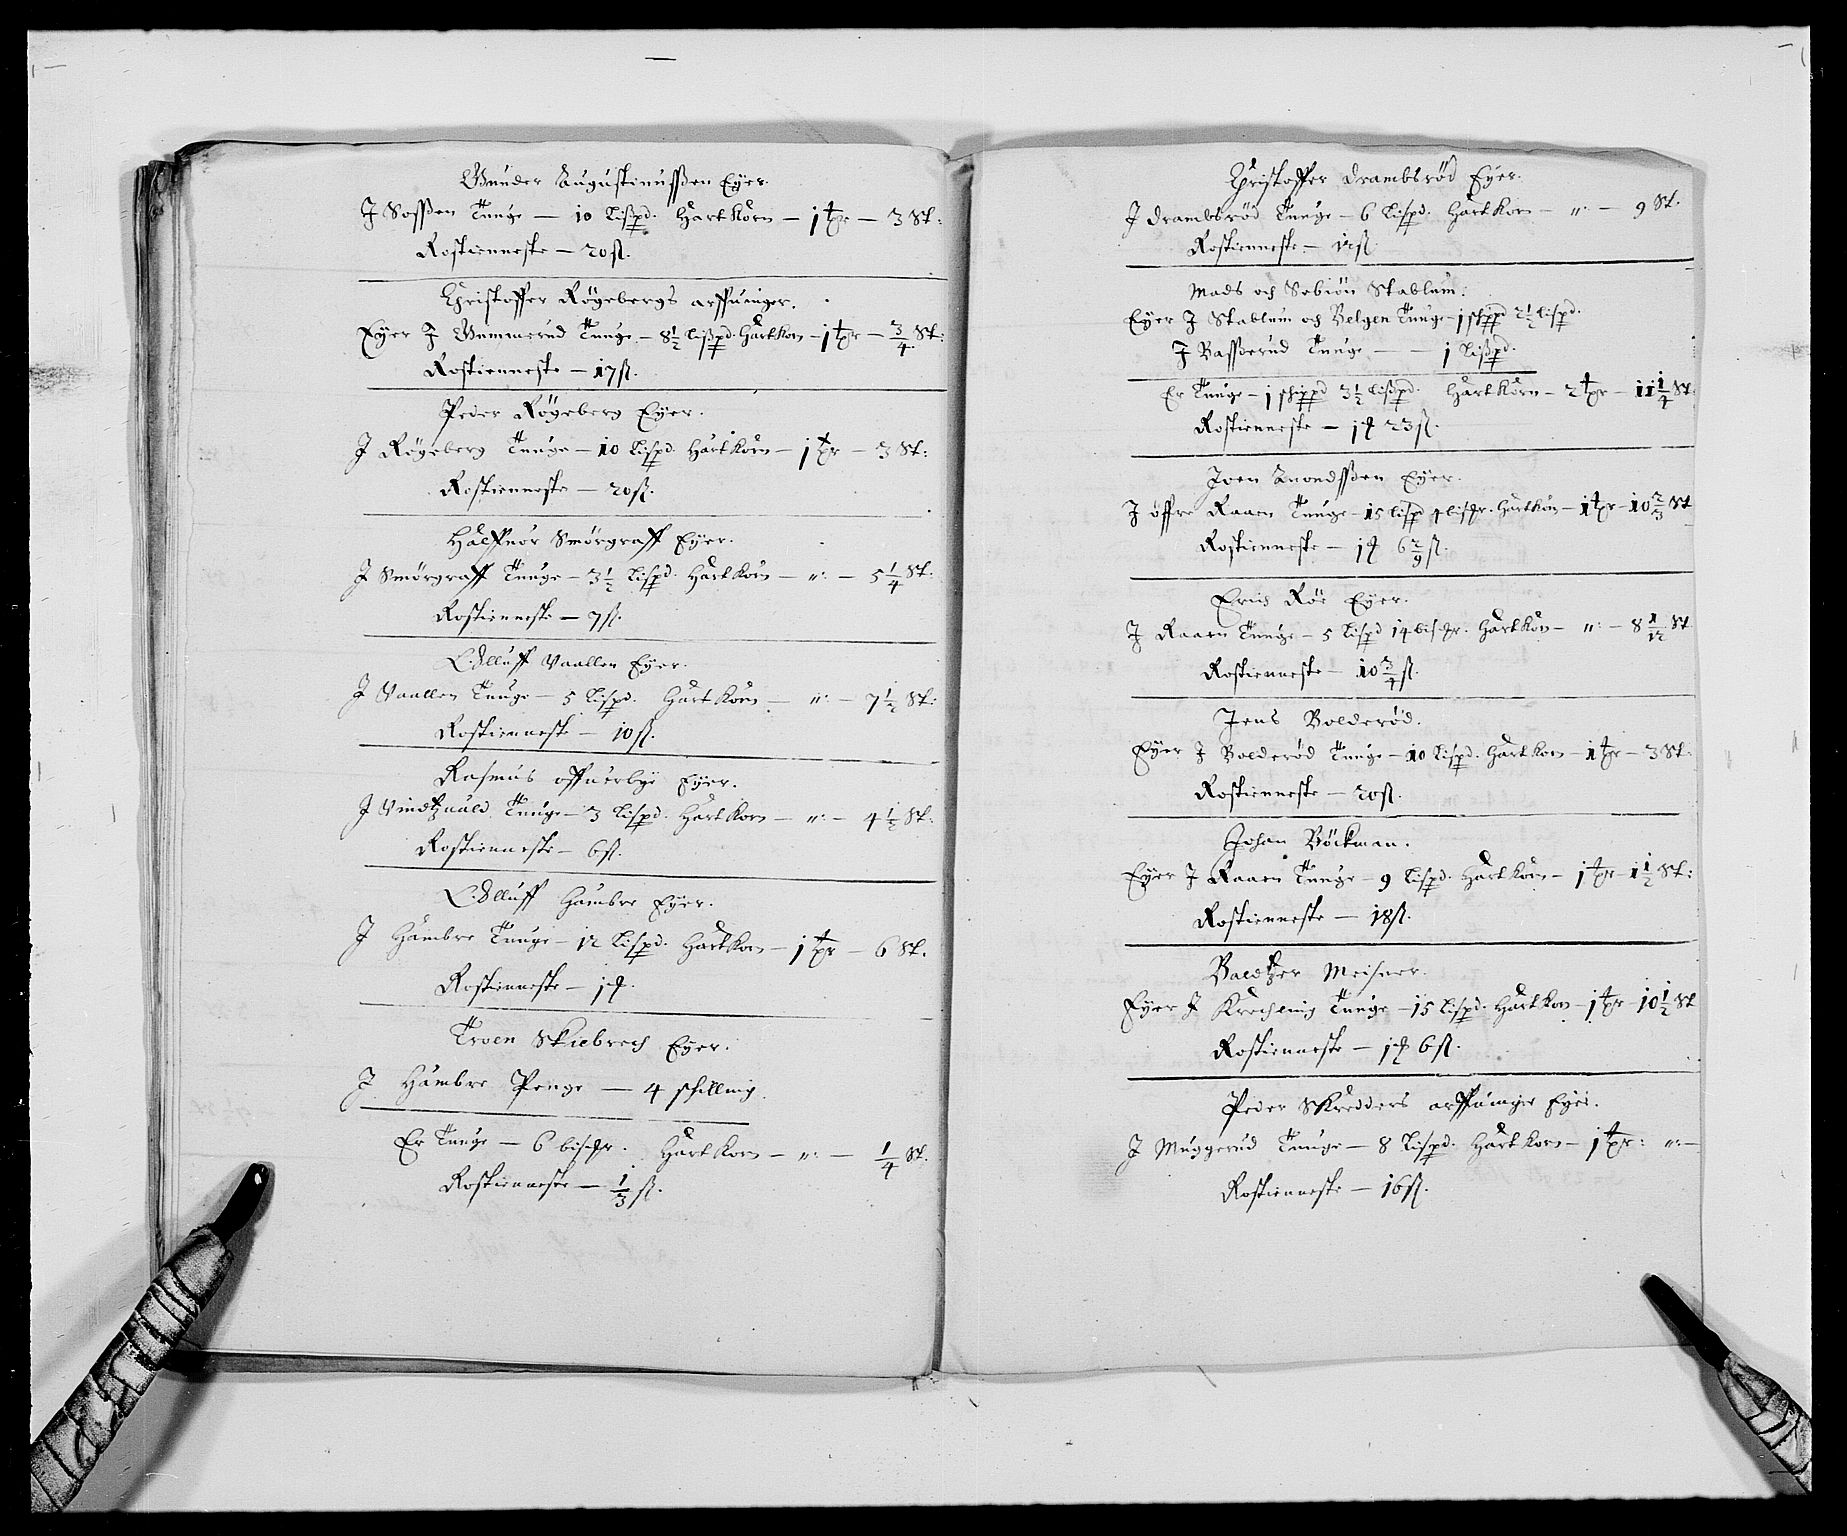 Gunder Augustinußen Eyer.
J Soßen Tunge — 10 Lißpd. Hartkorn — 1 tpr — 3 St:
Rostienneste — 20 sl.
Christoffer Rögebergs arffuinger.
Eyer J Gummerud Tunge — 8 1/2 Lißpd. Hartkorn — 1 tpr — 3/4 St:
Rostienneste — 17 sl.
Peder Rögeberg Eyer.
J Rögeberg Tunge — 10 Lispd. Hartkorn — 1 tpr — 3 St:
Rostienneste — 20 sl.
Halffuor Smörgraff Eyer.
J Smörgraff Tunge — 3 1/2 Lispd. Hartkorn — ": — 5 1/4 St:
Rostienneste — 7 sl.
Olluff Vaallen Eyer.
J Vaallen Tunge — 5 Lispd. Hartkorn — ": — 7 1/2 St:
Rostienneste — 10 sl.
Rasmus offuerbye Eyer.
J Vindtzuald Tunge — 3 Lispd. Hartkorn — ": — 4 1/2 St:
Rostienneste — 6 sl.
Olluff Hambre Eyer.
J Hambre Tunge — 12 Lispd. Hartkorn — 1 tpr — 6 St.
Rostienneste — 1
Troen Skiebrech Eyer.
J Hambre Penge — 4 schilling.
Er Tunge — 6 bismr. Hartkorn — ": — 1/4 St.
Rostienneste — 1/3 sl.
Christoffer Drambsröd Eyer.
J Drambsröd Tunge — 6 Lispd. Hartkorn — ": — 9 St.
Rostienneste — 12 sl
Mads och Sebiön Stablum:
Eyer J Stablum och Belgen Tunge — 1 schppd 2 1/2 lispd.
J Baßerud Tunge — — 1 Lißpd.
Er Tunge — 1 schippd 3 1/2 Lißpd. Hartkorn — 2 tpr — 11 1/4 St:
Rostienneste — 1 23 sl.
Joen Anondßen Eyer.
J öffre Raaen Tunge — 15 Lispd bismr. Hartkorn — 1 tpr — 10 2/3 St
Rostienneste — 1 6 2/9 sl.
Erich Röe Eyer.
J Raaen Tunge — 5 Lispd 14 bismr. Hartkorn — ": — 8 1/12 St
Rostienneste — 10 3/4 sl.
Jens Bolderöd.
Eyer J Bolderöd Tunge — 10 Lispd. Hartkorn — 1 tpr — 3 St.
Rostienneste — 20 sl.
Johan Böckman.
Eyer J Raaen Tunge — 9 Lispd. Hartkorn — 1 tpr — 1 1/2 St:
Rostienneste — 18 sl.
Baldtzer Meisner.
Eyer J Krechling Tunge — 15 Lispd. Hartkorn — 1 tpr — 10 1/2 St
Rostienneste — 1 6 sl.
Peder Skredders arffuinger Eyer.
J Muggerud Tunge — 8 Lispd. Hartkorn — 1 tpr: ": —
Rostienneste — 16 sl.